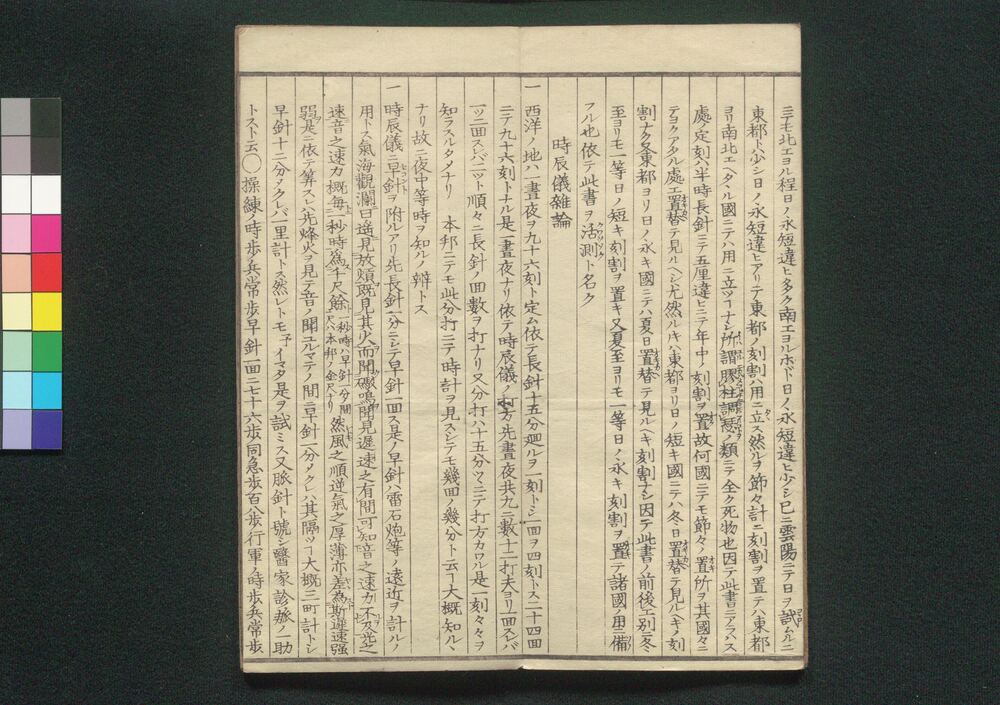 ニテモ北エヨル程日ノ永短違ヒ多ク南エヨルホド日ノ永短違ヒ少シ已ニ雲陽ニテ日ヲ試ムルニ
東都ト少シ日ノ永短違ヒアリテ東都ノ刻割ハ用ニ立ス然ルヲ節々計ニ刻割ヲ置テハ東都
ヨリ南北エヘタヽル國ニテハ用ニ立ツヿナシ所謂膠柱調瑟ノ類ニテ全ク死物也因テ此書ニアラハス
處ノ定刻ハ半時長針ニテ五厘違ヒニテ年中ノ刻割ヲ置故何國ニテモ節々ノ置所ヲ其國々ニ
テヨクアタル處エ置替テ見ルヘシ尤然ルキハ東都ヨリ日ノ短キ國ニテハ冬日置替テ見ルヘキノ刻
割ナク又東都ヨリ日ノ永キ國ニテハ夏日置替テ見ルヘキ刻割ナシ因テ此書ノ前後エ別ニ冬
至ヨリモ一等日ノ短キ刻割ヲ置キ又夏至ヨリモ一等日ノ永キ刻割ヲ置テ諸國ノ用ニ備
フル也依テ此書ヲ活測ト名ク
時辰儀雜論
一 西洋ノ地ハ一晝夜ヲ九十六刻ト定ム依テ長針十五分廻ルヲ一刻トシ一面ヲ四刻トス二十四面
ニテ九十六刻トナル是一晝夜ナリ依テ時辰儀ノ打方先晝夜共九ニ數十二打夫ヨリ一面スレバ
一ツ二面スレバ二ツト順々ニ長針ノ回數ヲ打ナリ又分打ハ十五分ツヽニテ打方カワル是一刻々々ヲ
知ラスルタメナリ 本邦ニテモ此分打ニテ時計ヲ見スシテモ幾回ノ幾分ト云ヿ大概知ルヽ
ナリ故ニ夜中等時ヲ知ルノ辨トス
一 時辰儀ニ早針ヲ附ルアリ先長針一分ニシテ早針一面ス是ノ早針ハ雷石炮等ノ遠近ヲ計ルノ
用トス氣海觀瀾曰遙見放熕既見其火而聞礮鳴聞見遲速之有間可知音之速力不及光之
速音之速力概每一秒時爲千尺餘一秒時ハ早針一分間尺ハ本邦ノ金尺ナリ然風之順逆氣之厚薄亦差為斯遲速强
弱是ニ依テ算スレハ先烽火ヲ見テ音ノ聞ユルマテノ間ニ早針一分メクレハ其隔ツヿ大概三町計トシ
早針十二分メクレバ一里計トス然レトモ予イマタ是ヲ試ミス又脈針ト號シ醫家診脈ノ一助
トスト云〇操練ノ時歩ノ兵常歩早針一面ニ七十六歩同急歩百八歩行軍ノ時歩ノ兵常歩